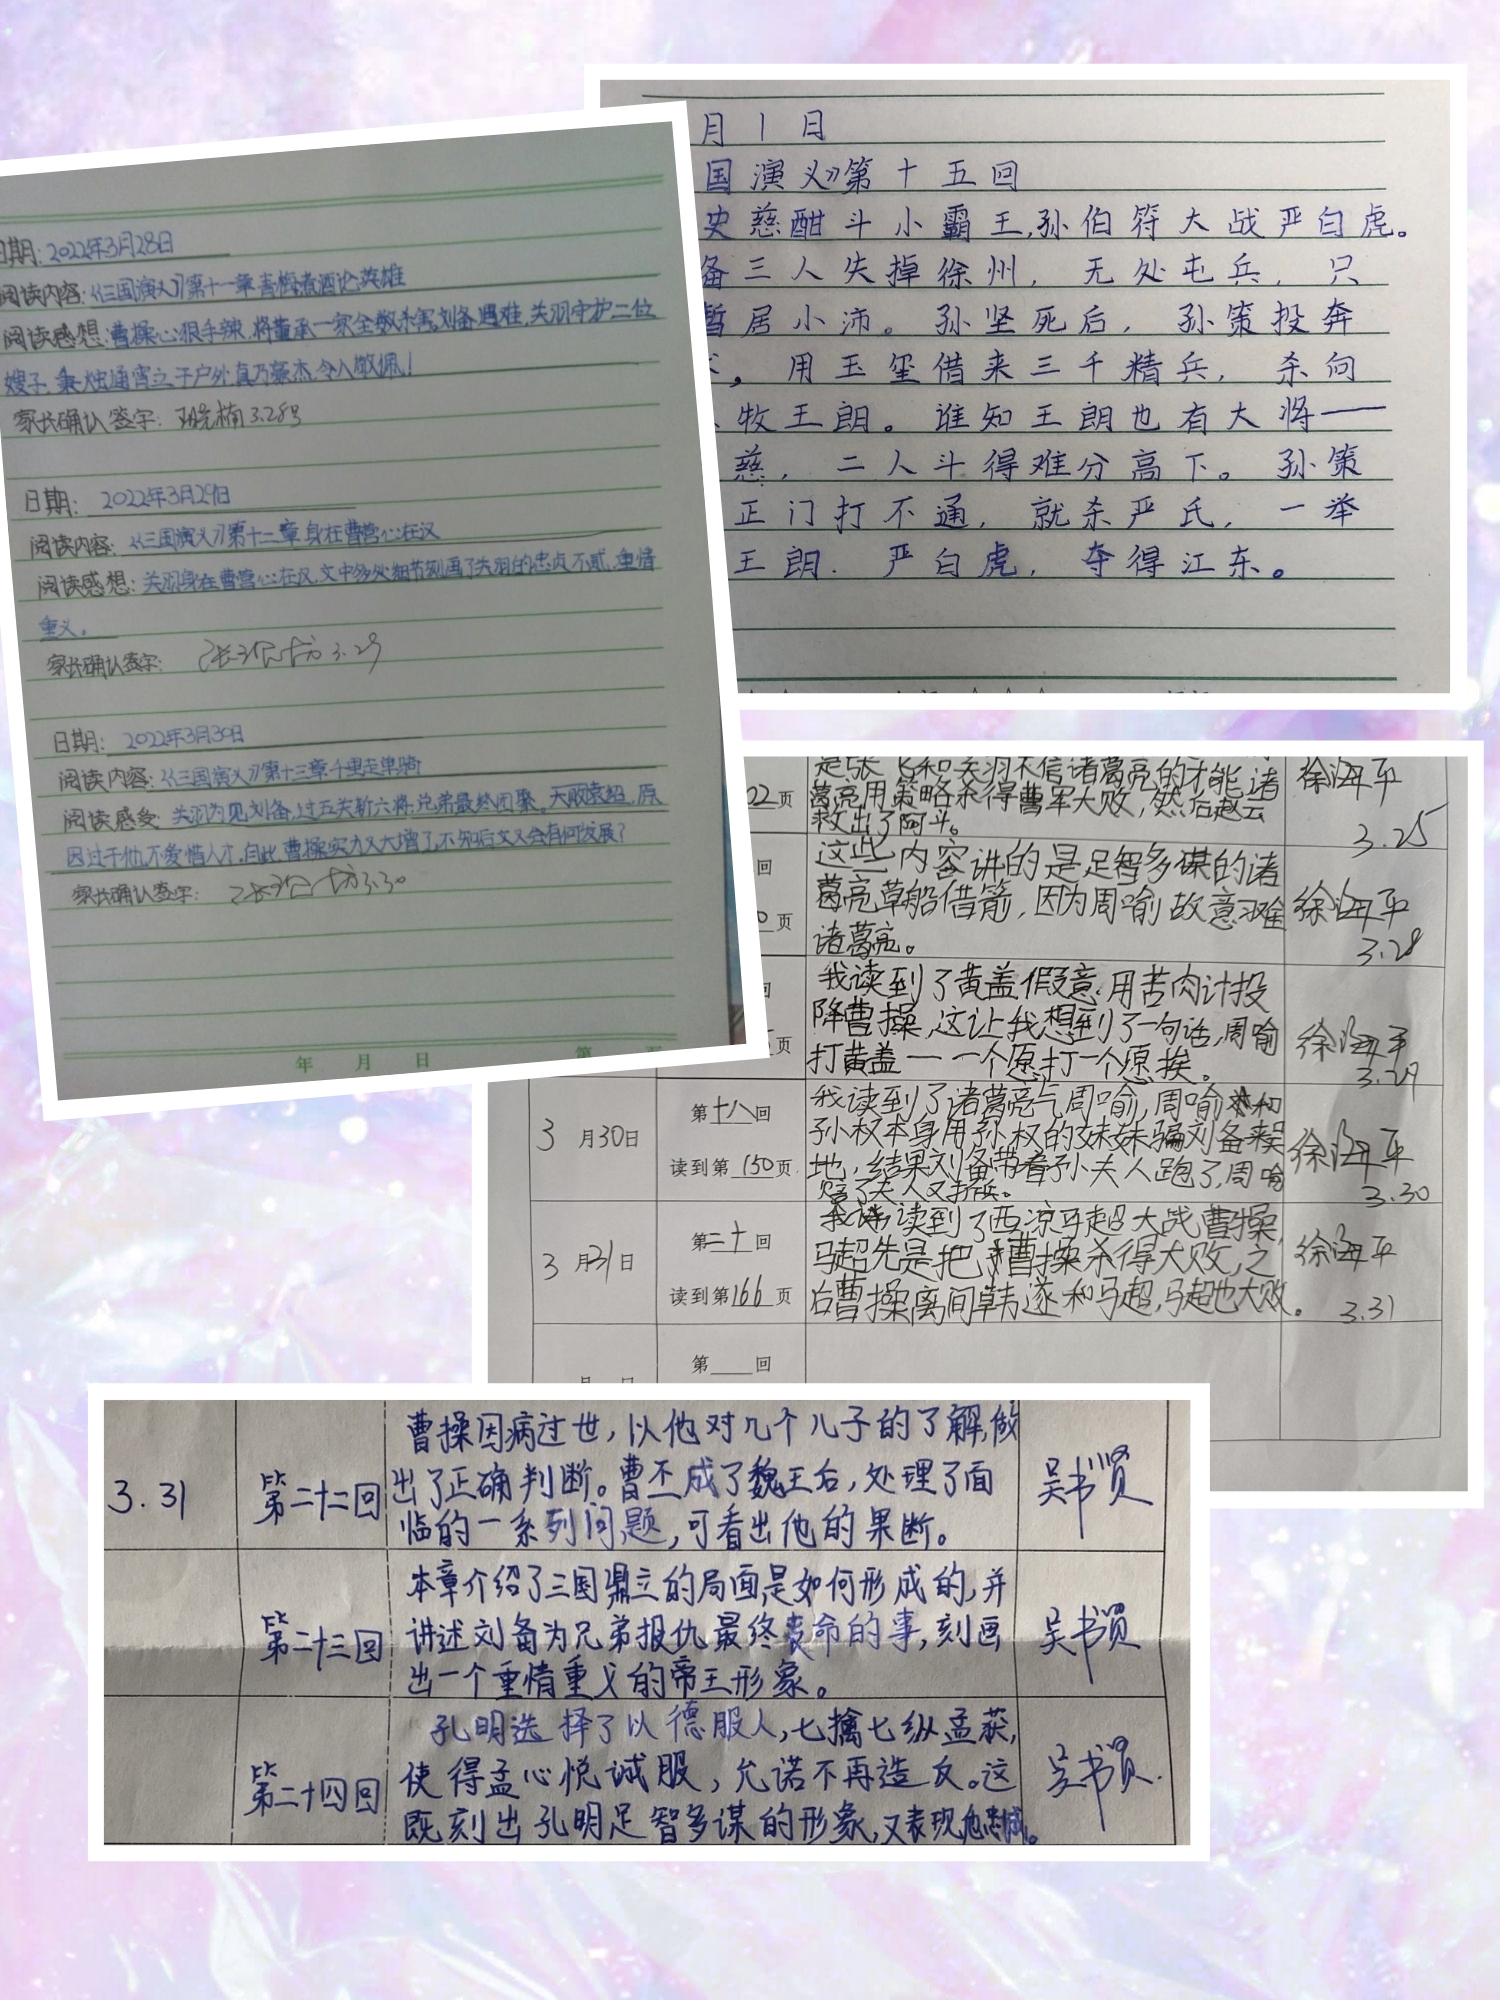 日期：2022年3月28日
阅读内容：《三国演义》第十一章青梅煮酒论英雄
阅读感想：曹操心狠手辣，将董承一家全数杀害，刘备遇难，关羽守护二位
嫂子，秉烛通宵立于户外，真乃豪杰，令人敬佩！
家长确认签字：3.28号
日期：2022年3月29日
阅读内容：《三国演义》第十二章身在曹营心在汉
阅读感想：关羽身在曹营心在汉，文中多处细节刻画了关羽的忠贞不贰，重情
重义。
家长确认签字：3.29
日期：2022年3月30日
阅读内容：《三国演义》第十三章千里走单骑
阅读感受：关羽为见刘备，过五关斩六将，兄弟最终团聚。天败袁绍，原
因过于他不爱惜人才，自此，曹操实力又大增了，不知后文又会有何发展？
家长确认签字：3.30
年 月 日
月1日
国演义》第十五回
史慈酣斗小霸王，孙伯符大战严白虎。
备三人失掉徐州，无处屯兵，只
暂居小沛。孙坚死后，孙策投奔
，用玉玺借来三千精兵，杀向
牧王朗。谁知王朗也有大将——
慈，二人斗得难分高下。孙策
正门打不通，就杀严氏，一举
王朗．严白虎，夺得江东。
02页
是张飞和关羽不信诸葛亮的才能，诸
葛亮用策略杀得曹军大败，然后赵云
救出了阿斗。
徐海平
3.25
回
页
这些内容讲的是足智多谋的诸
葛亮草船借箭，因为周喻故意难
诸葛亮。
徐海平
3.28
回
页
我读到了黄盖假意用苦肉计投
降曹操，这让我想到了一句话，周喻
打黄盖——一个愿打一个愿挨。
徐海平
3.29
3月30日
第十八回
读到第150页
我读到了诸葛亮气周喻，周喻和
孙权本身用孙权的妹妹骗刘备来吴
地，结果刘备带着孙夫人跑了，周喻
赔了夫人又折兵。
徐海平
3.30
3月31日
第二十回
读到第166页
我读到了西凉马超大战曹操，
马超先是把曹操杀得大败，之
后曹操离间韩遂和马超，马超也大败。
徐海平
3.31
第 回
3.31
第二十二回
曹操因病过世，以他对几个儿子的了解，做
出了正确判断。曹丕成了魏王后，处理了面
临的一系列问题，可看出他的果断。
吴书贤
第二十三回
本章介绍了三国鼎立的局面是如何形成的，并
讲述刘备为兄弟报仇最终丧命的事，刻画
出一个重情重义的帝王形象。
吴书贤
第二十四回
孔明选择了以德服人，七擒七纵孟获，
使得孟心悦诚服，允诺不再造反。这
既刻出孔明足智多谋的形象，又表现他忠诚。
吴书贤